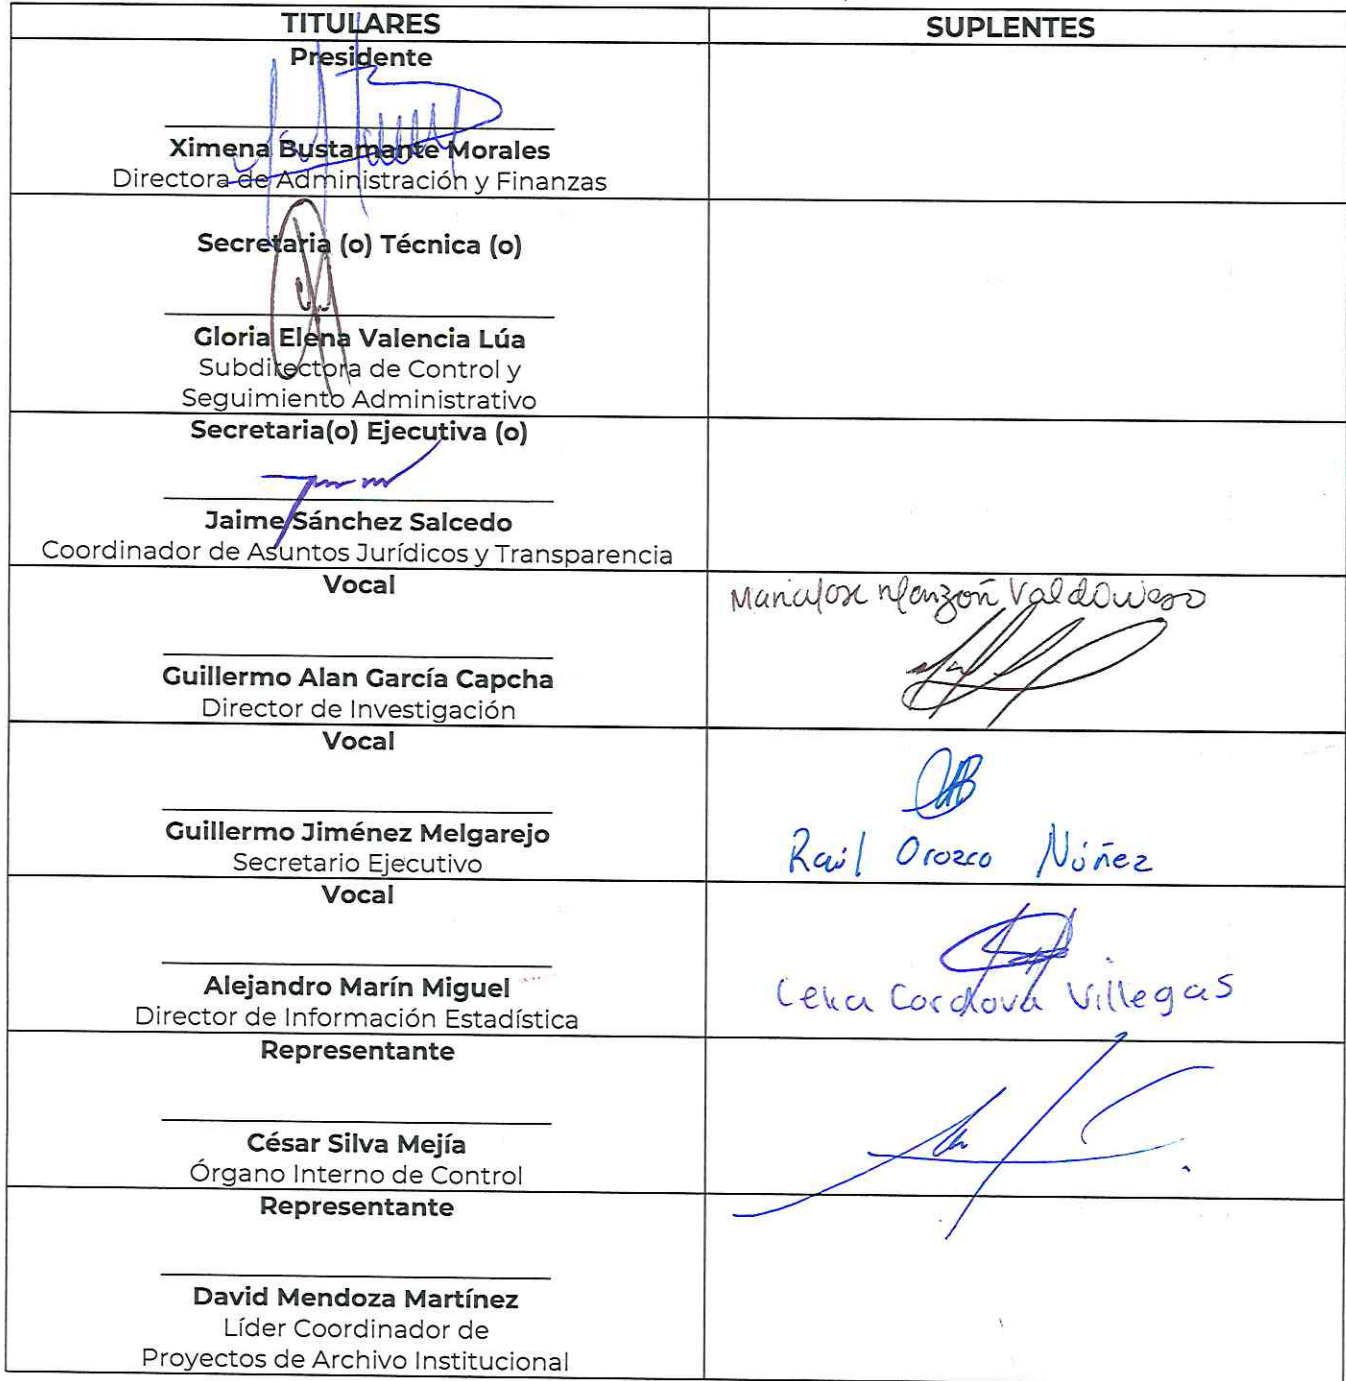 TITULARES
SUPLENTES
Presidente
Ximena Bustamante Morales
Directora de Administración y Finanzas
Secretaria (o) Técnica (o)
Gloria Elena Valencia Lúa
Subdirectora de Control y
Seguimiento Administrativo
Secretaria(o) Ejecutiva (o)
Jaime Sánchez Salcedo
Coordinador de Asuntos Jurídicos y Transparencia
Vocal
Guillermo Alan García Capcha
Director de Investigación
Vocal
Guillermo Jiménez Melgarejo
Secretario Ejecutivo
Raúl Orozco Núñez
Vocal
Alejandro Marín Miguel
Director de Información Estadística
Cordova Villegas
Representante
César Silva Mejía
Órgano Interno de Control
Representante
David Mendoza Martínez
Líder Coordinador de
Proyectos de Archivo Institucional